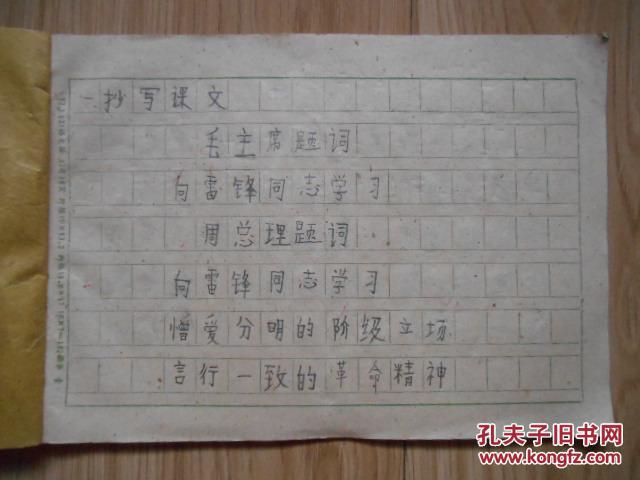 一抄写课文
毛主席题词
向雷锋同志学习
周总理题词
向雷锋同志学习
憎爱分明的阶级立场
言行一致的革命精神
孔夫子旧书网
www.kongfz.com